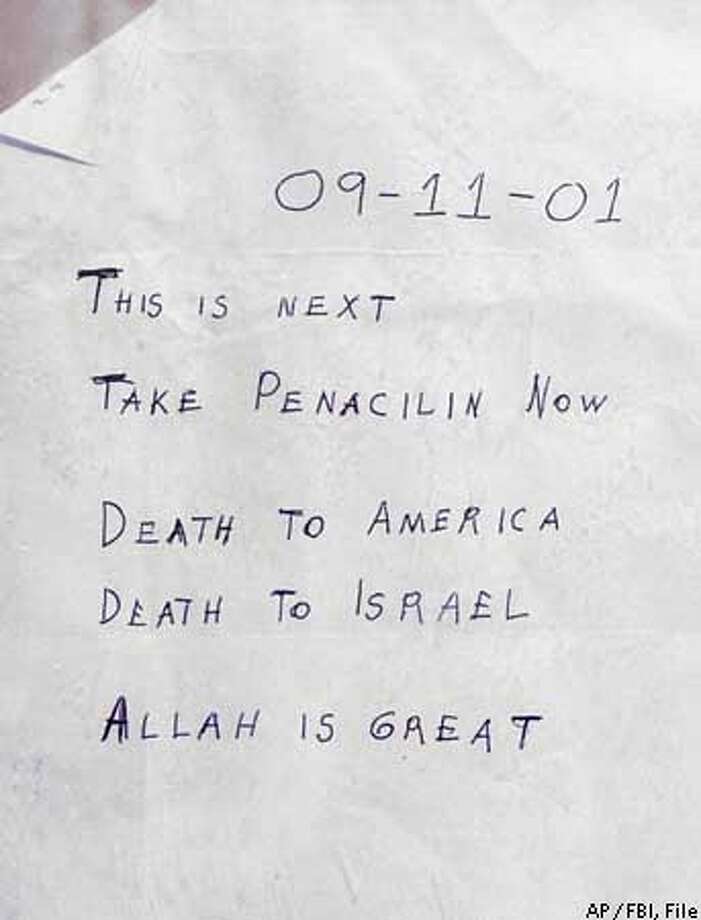 09-11-01
THIS IS NEXT
TAKE PENACILIN NOW
DEATH TO AMERICA
DEATH TO ISRAEL
ALLAH IS GREAT
AP/FBI, File